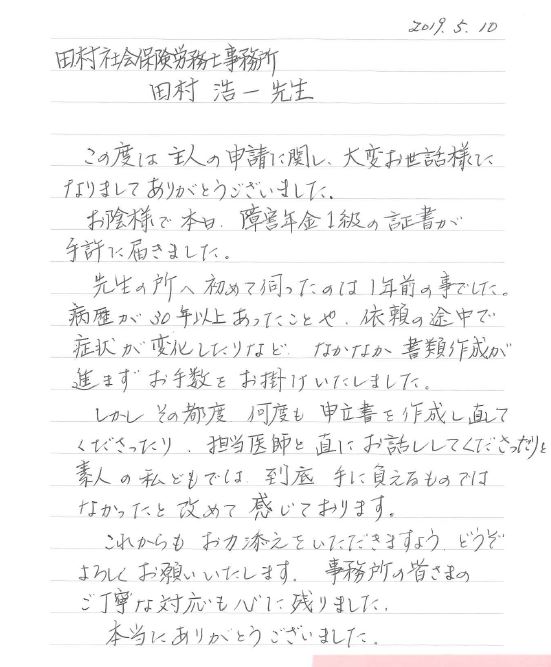 2019. 5. 10
田村社会保険労務士事務所
田村 浩一 先生
この度は 主人の申請に関し、大変お世話様に
なりましてありがとうございました。
お陰様で本日、障害年金1級の証書が
手許に届きました。
先生の所へ初めて伺ったのは1年前の事でした。
病歴が30年以上あったことや、依頼の途中で
症状が変化したりなど、なかなか書類作成が
進まずお手数をお掛けいたしました。
しかしその都度、何度も申立書を作成し直して
くださったり、担当医師と直にお話ししてくださったりと
素人の私どもでは、到底 手に負えるものでは
なかったと改めて感じております。
これからもお力添えをいただきますよう、どうぞ
よろしくお願いいたします。事務所の皆さまの
ご丁寧な対応も心に残りました。
本当にありがとうございました。